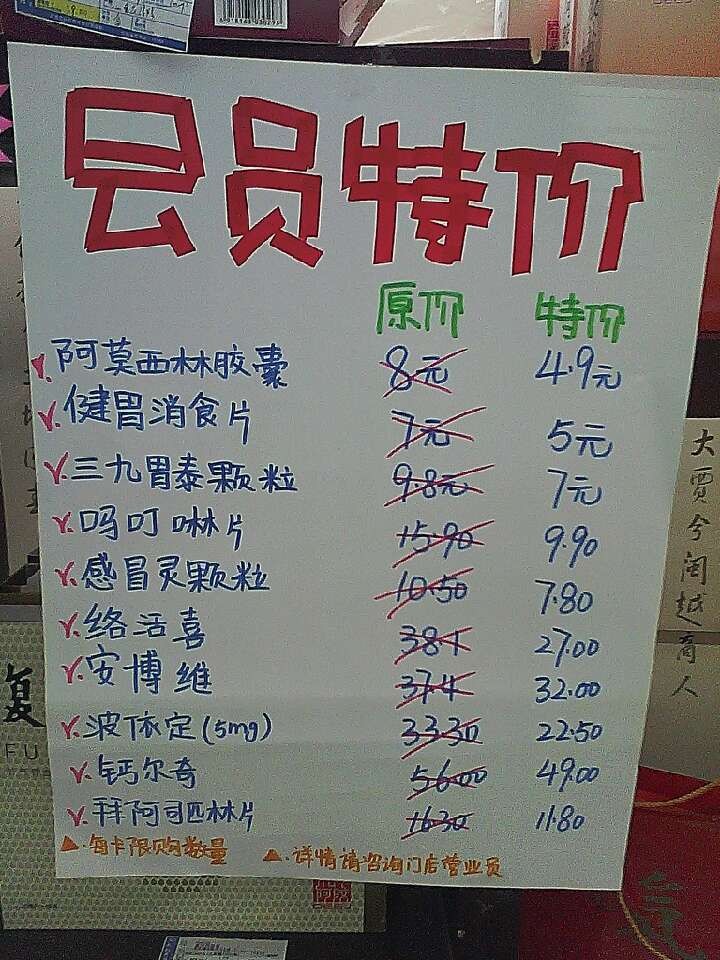 会员特价
原价 特价
阿莫西林胶囊 8元 4.9元
健胃消食片 7元 5元
三九胃泰颗粒 9.8元 7元
吗叮啉片 15.90 9.90
感冒灵颗粒 10.50 7.80
络活喜 38.1 27.00
安博维 37.4 32.00
波依定(5mg) 33.30 22.50
钙尔奇 56.00 49.00
拜阿司匹林片 16.30 11.80
▲.每卡限购数量 ▲.详情请咨询门店营业员
大贾今阔越商人
复
FU